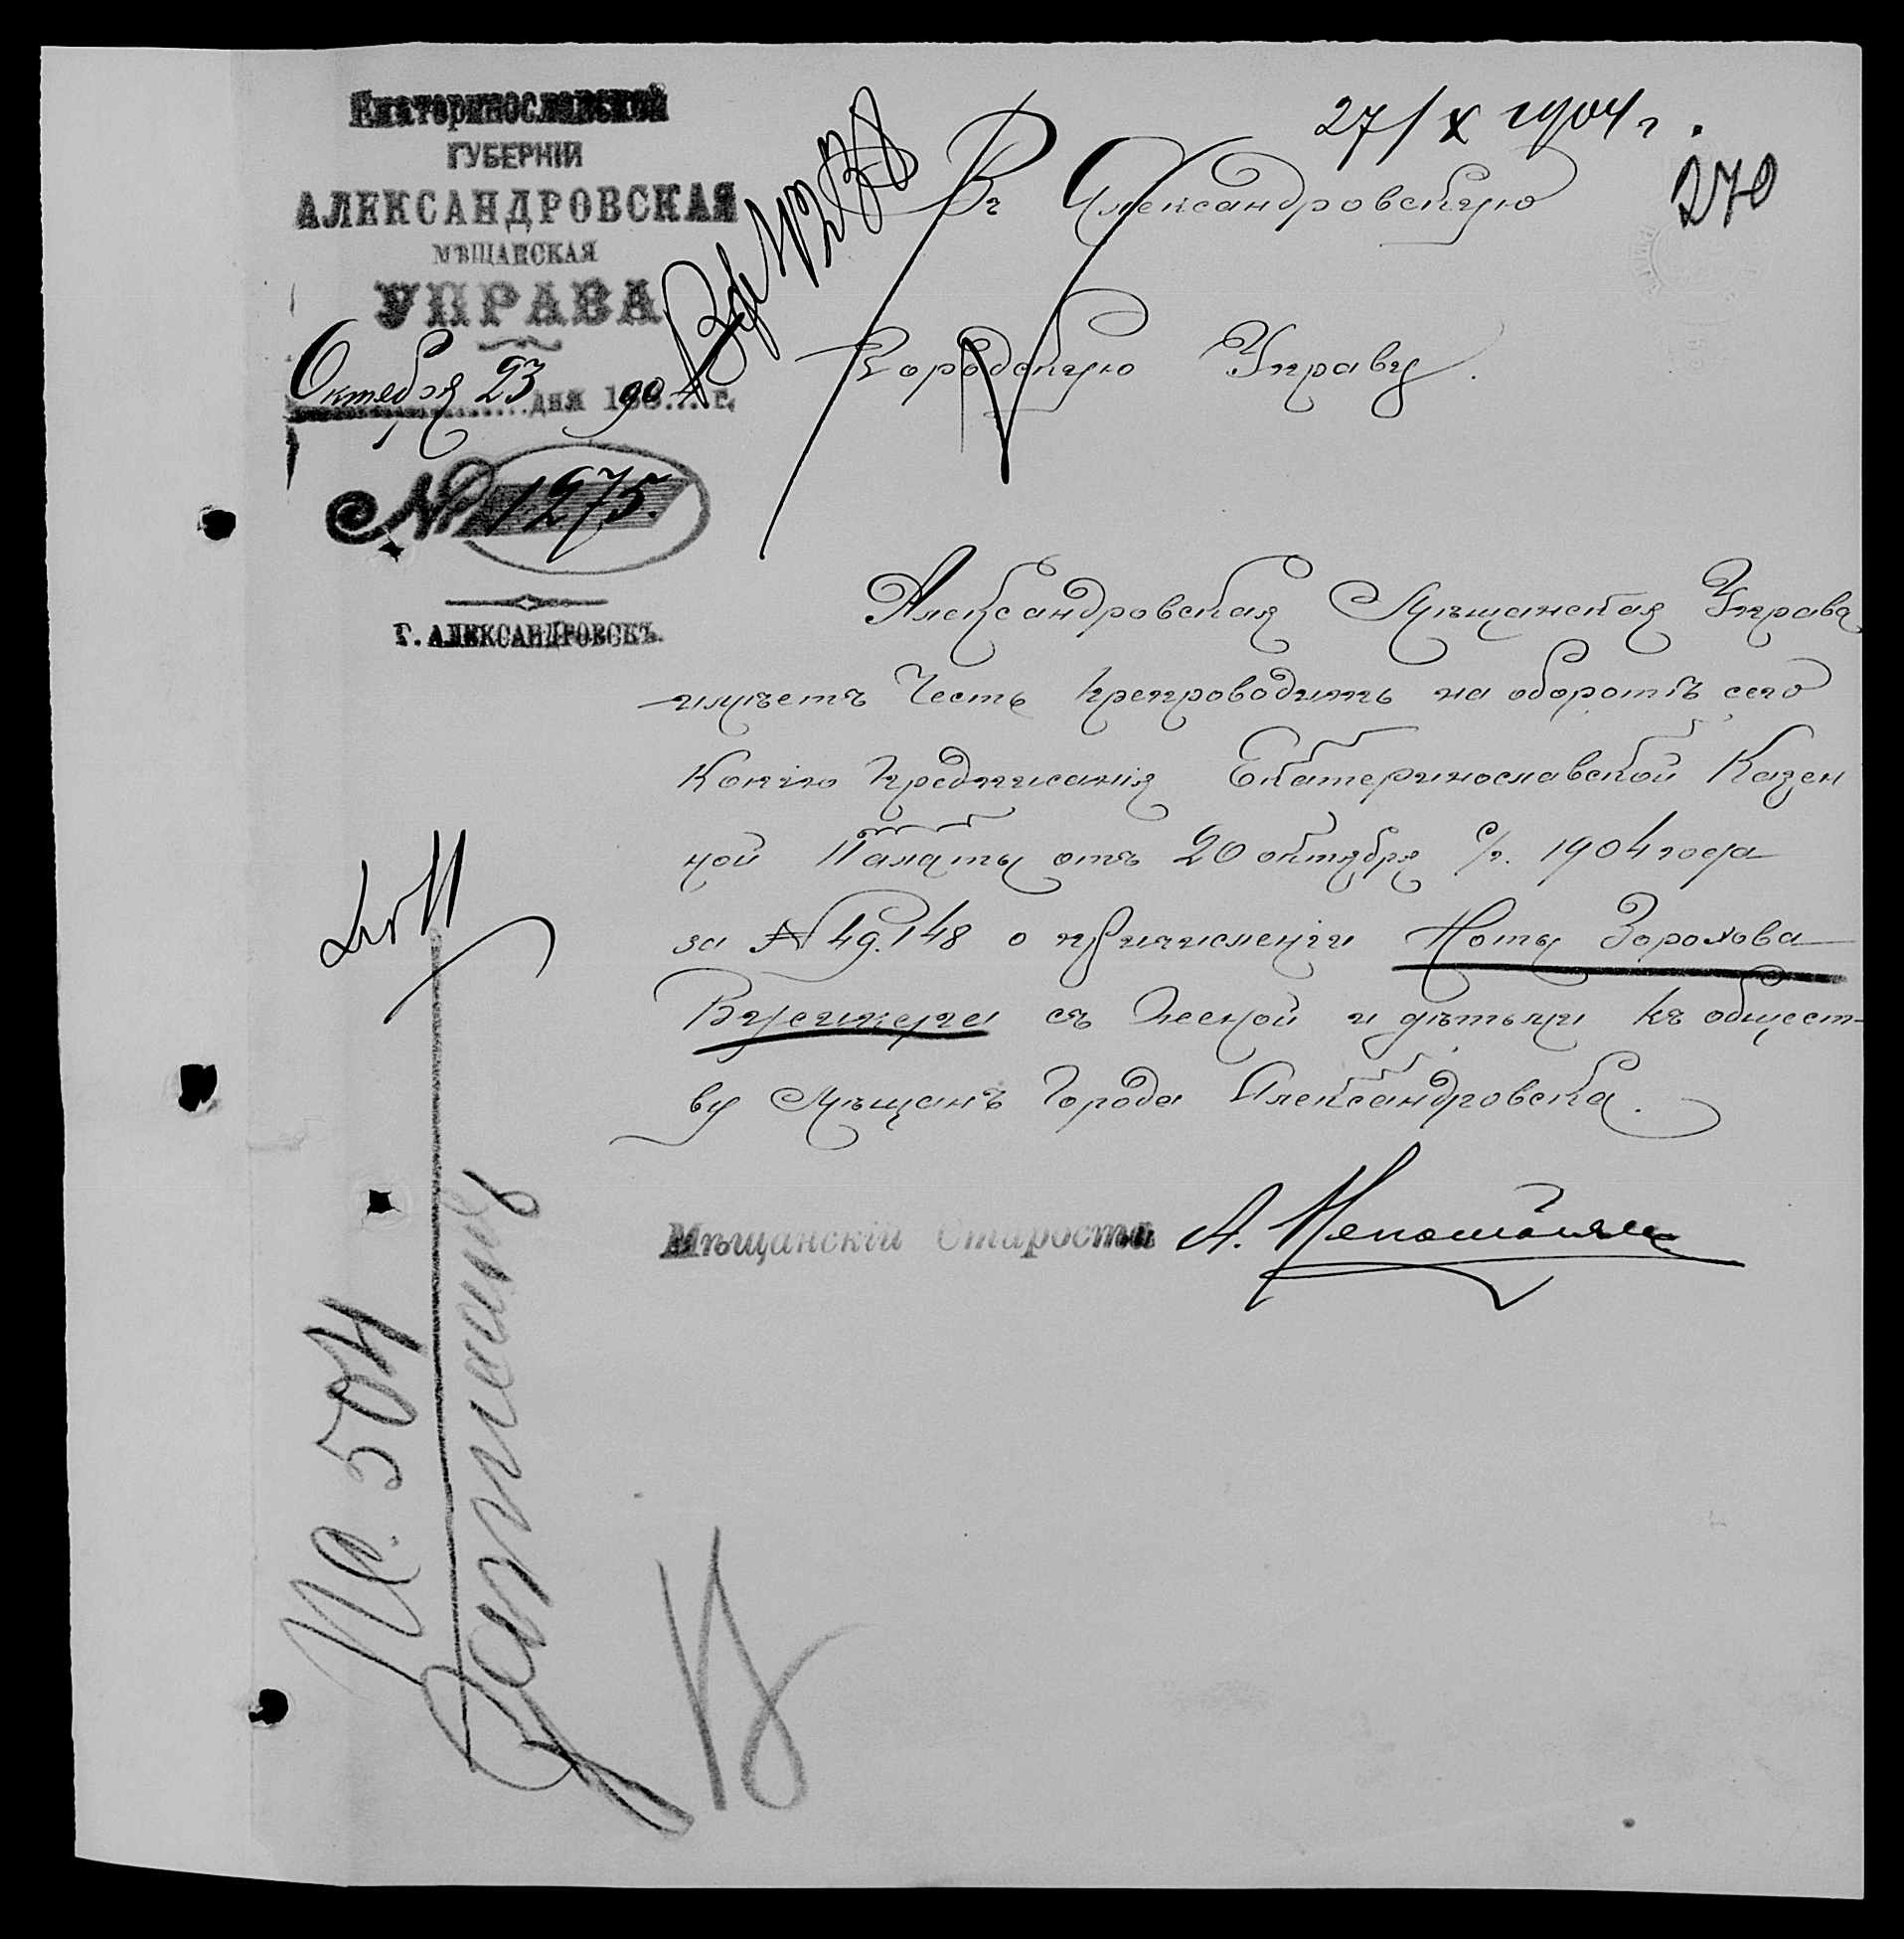 Екатеринославской
ГУБЕРНІИ
АЛЕКСАНДРОВСКАЯ
МѢЩАНСКАЯ
УПРАВА
Октября 23 дня 1904 г.
№ 1275.
Г. АЛЕКСАНДРОВСКЪ.
27/X 1904 г.
270
Въ Александровскую
Городскую Управу.
Александровская Мѣщанская Управа
имѣетъ честь препроводить на оборотѣ сего
копію предписанія Екатеринославской Казен
ной Палаты отъ 20 октября с/г. 1904 года
за № 49.148 о причисленіи Ноты Зорохова
съ женой и дѣтьми къ общест-
ву мѣщанъ города Александровска.
Мѣщанскій Староста А.
504